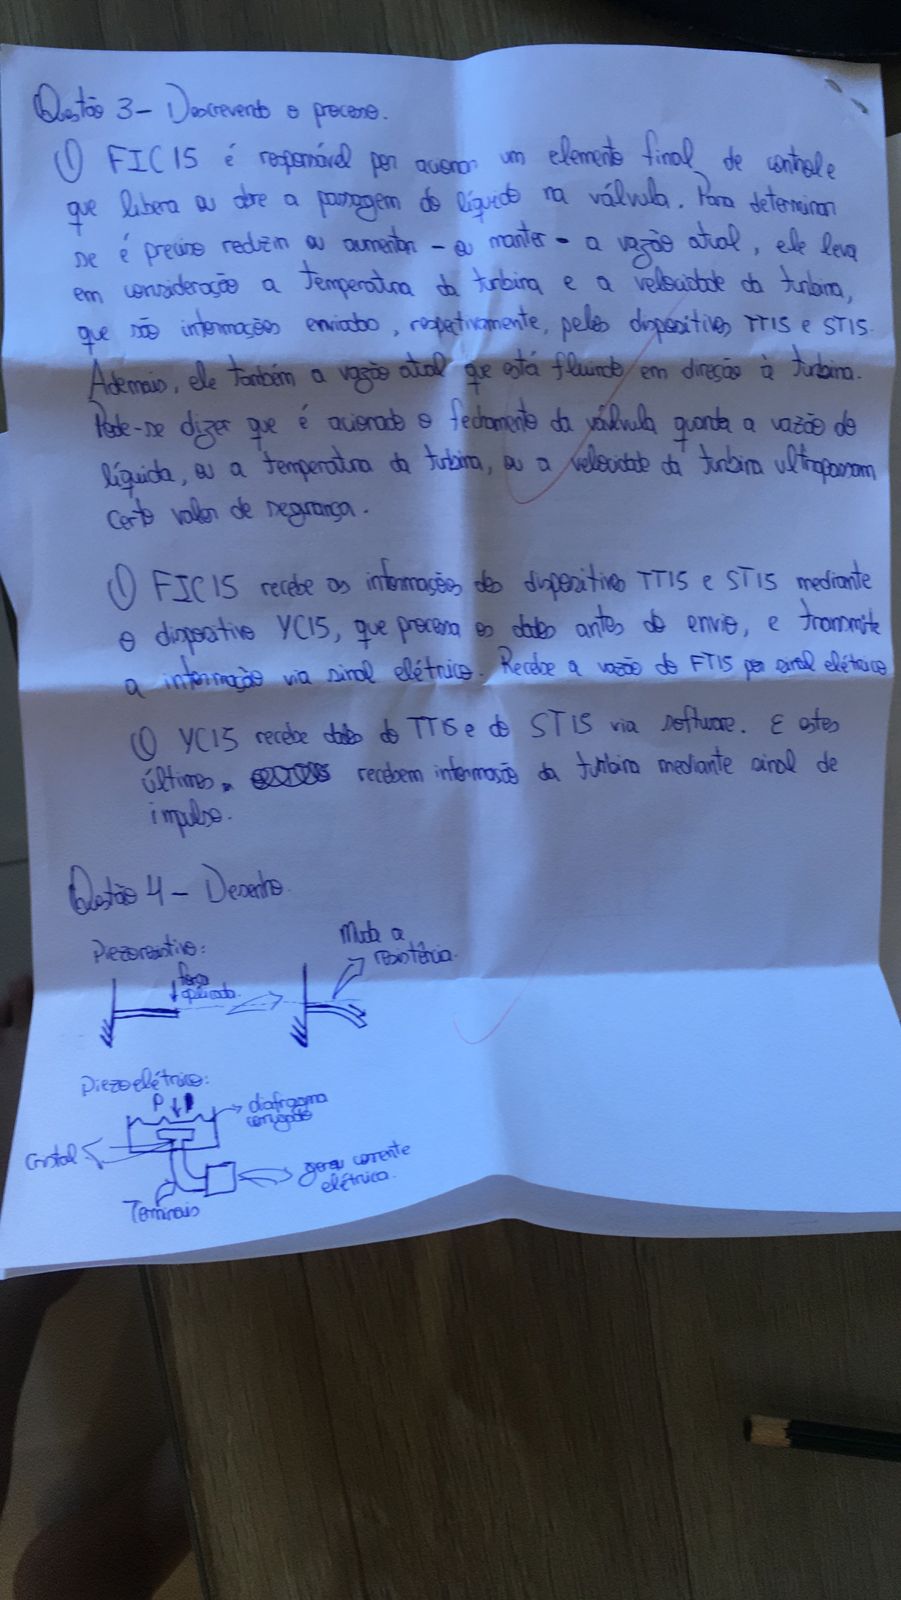 Questão 3 - Descrevendo o processo.
① FIC15 é responsável por acionar um elemento final de controle
que libera ou abre a passagem do líquido na válvula. Para determinar
se é preciso reduzir ou aumentar - ou manter - a vazão atual, ele leva
em consideração a temperatura da turbina e a velocidade da turbina,
que são informações enviado, respetivamente, pelos dispositivos TT15 e ST15.
Ademais, ele também a vazão atual que está fluindo em direção à turbina.
Pode-se dizer que é acionado o fechamento da válvula quando a vazão do
líquido, ou a temperatura da turbina, ou a velocidade da turbina ultrapassam
certo valor de segurança.
① FIC15 recebe as informações dos dispositivos TT15 e ST15 mediante
o dispositivo YC15, que processa os dados antes do envio, e transmite
a informação via sinal elétrico. Recebe a vazão do FT15 por sinal elétrico
① YC15 recebe dados do TT15 e do ST15 via software. E estes
últimos recebem informação da turbina mediante sinal de
impulso.
Questão 4 - Desenho.
Piezoresistivo:
força
aplicada
Muda a
resistência.
Piezoelétrico:
P
diafragma
corrugado
Cristal
gerou corrente
elétrica.
Terminais